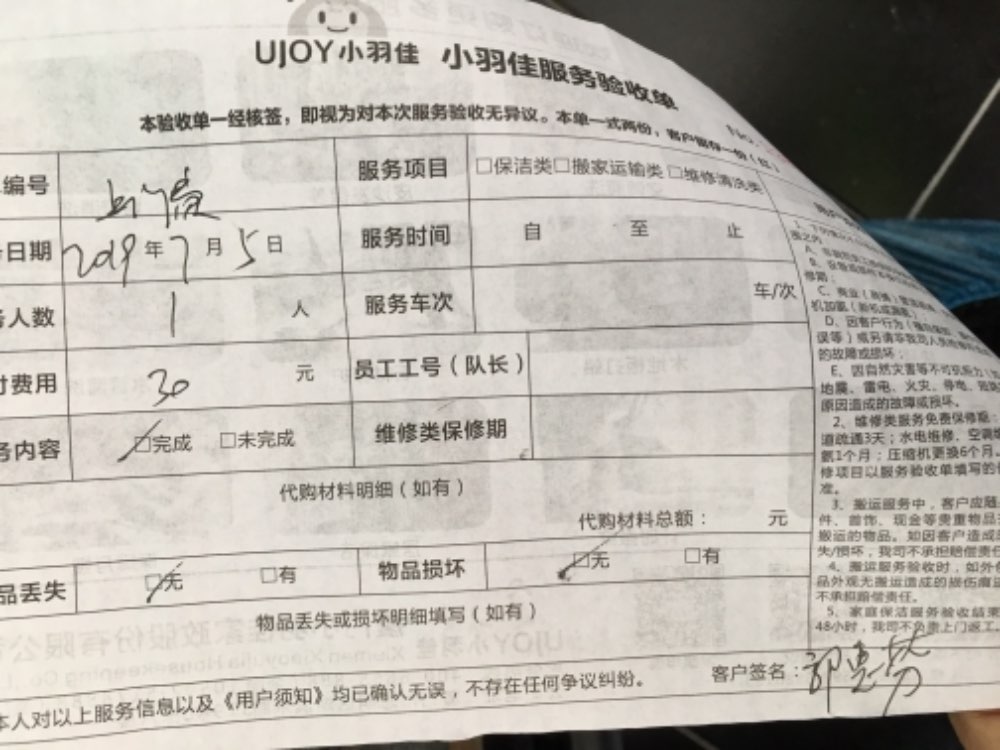 UJOY小羽佳 小羽佳服务验收单
No.
本验收单一经核签，即视为对本次服务验收无异议。本单一式两份，客户留存一份（红）
编号 上门 服务项目 □保洁类□搬家运输类 □维修清洗类
日期 2019年7月5日 服务时间 自 至 止
人数 1 人 服务车次 车/次
费用 30 元 员工工号（队长）
务内容 □完成 □未完成 维修类保修期
代购材料明细（如有）
代购材料总额： 元
品丢失 □无 □有 物品损坏 □无 □有
物品丢失或损坏明细填写（如有）
本人对以上服务信息以及《用户须知》均已确认无误，不存在任何争议纠纷。
客户签名：
C、商业
D、因客户行为
的故障或损坏；
E、因自然灾害等不可抗力
地震、雷电、火灾、停电
原因造成的故障或损坏。
2、维修类服务免费保修期：
道疏通3天；水电维修、空调
氨1个月；压缩机更换6个月。
修项目以服务验收单填写的
准。
3、搬运服务中，客户应随
件、首饰、现金等贵重物品
搬运的物品。如因客户造成
失/损坏，我司不承担赔偿责
4、搬运服务验收时，如外
品外观无搬运造成的损伤痕
不承担赔偿责任。
5、家庭保洁服务验收结束
48小时，我司不负责上门返工